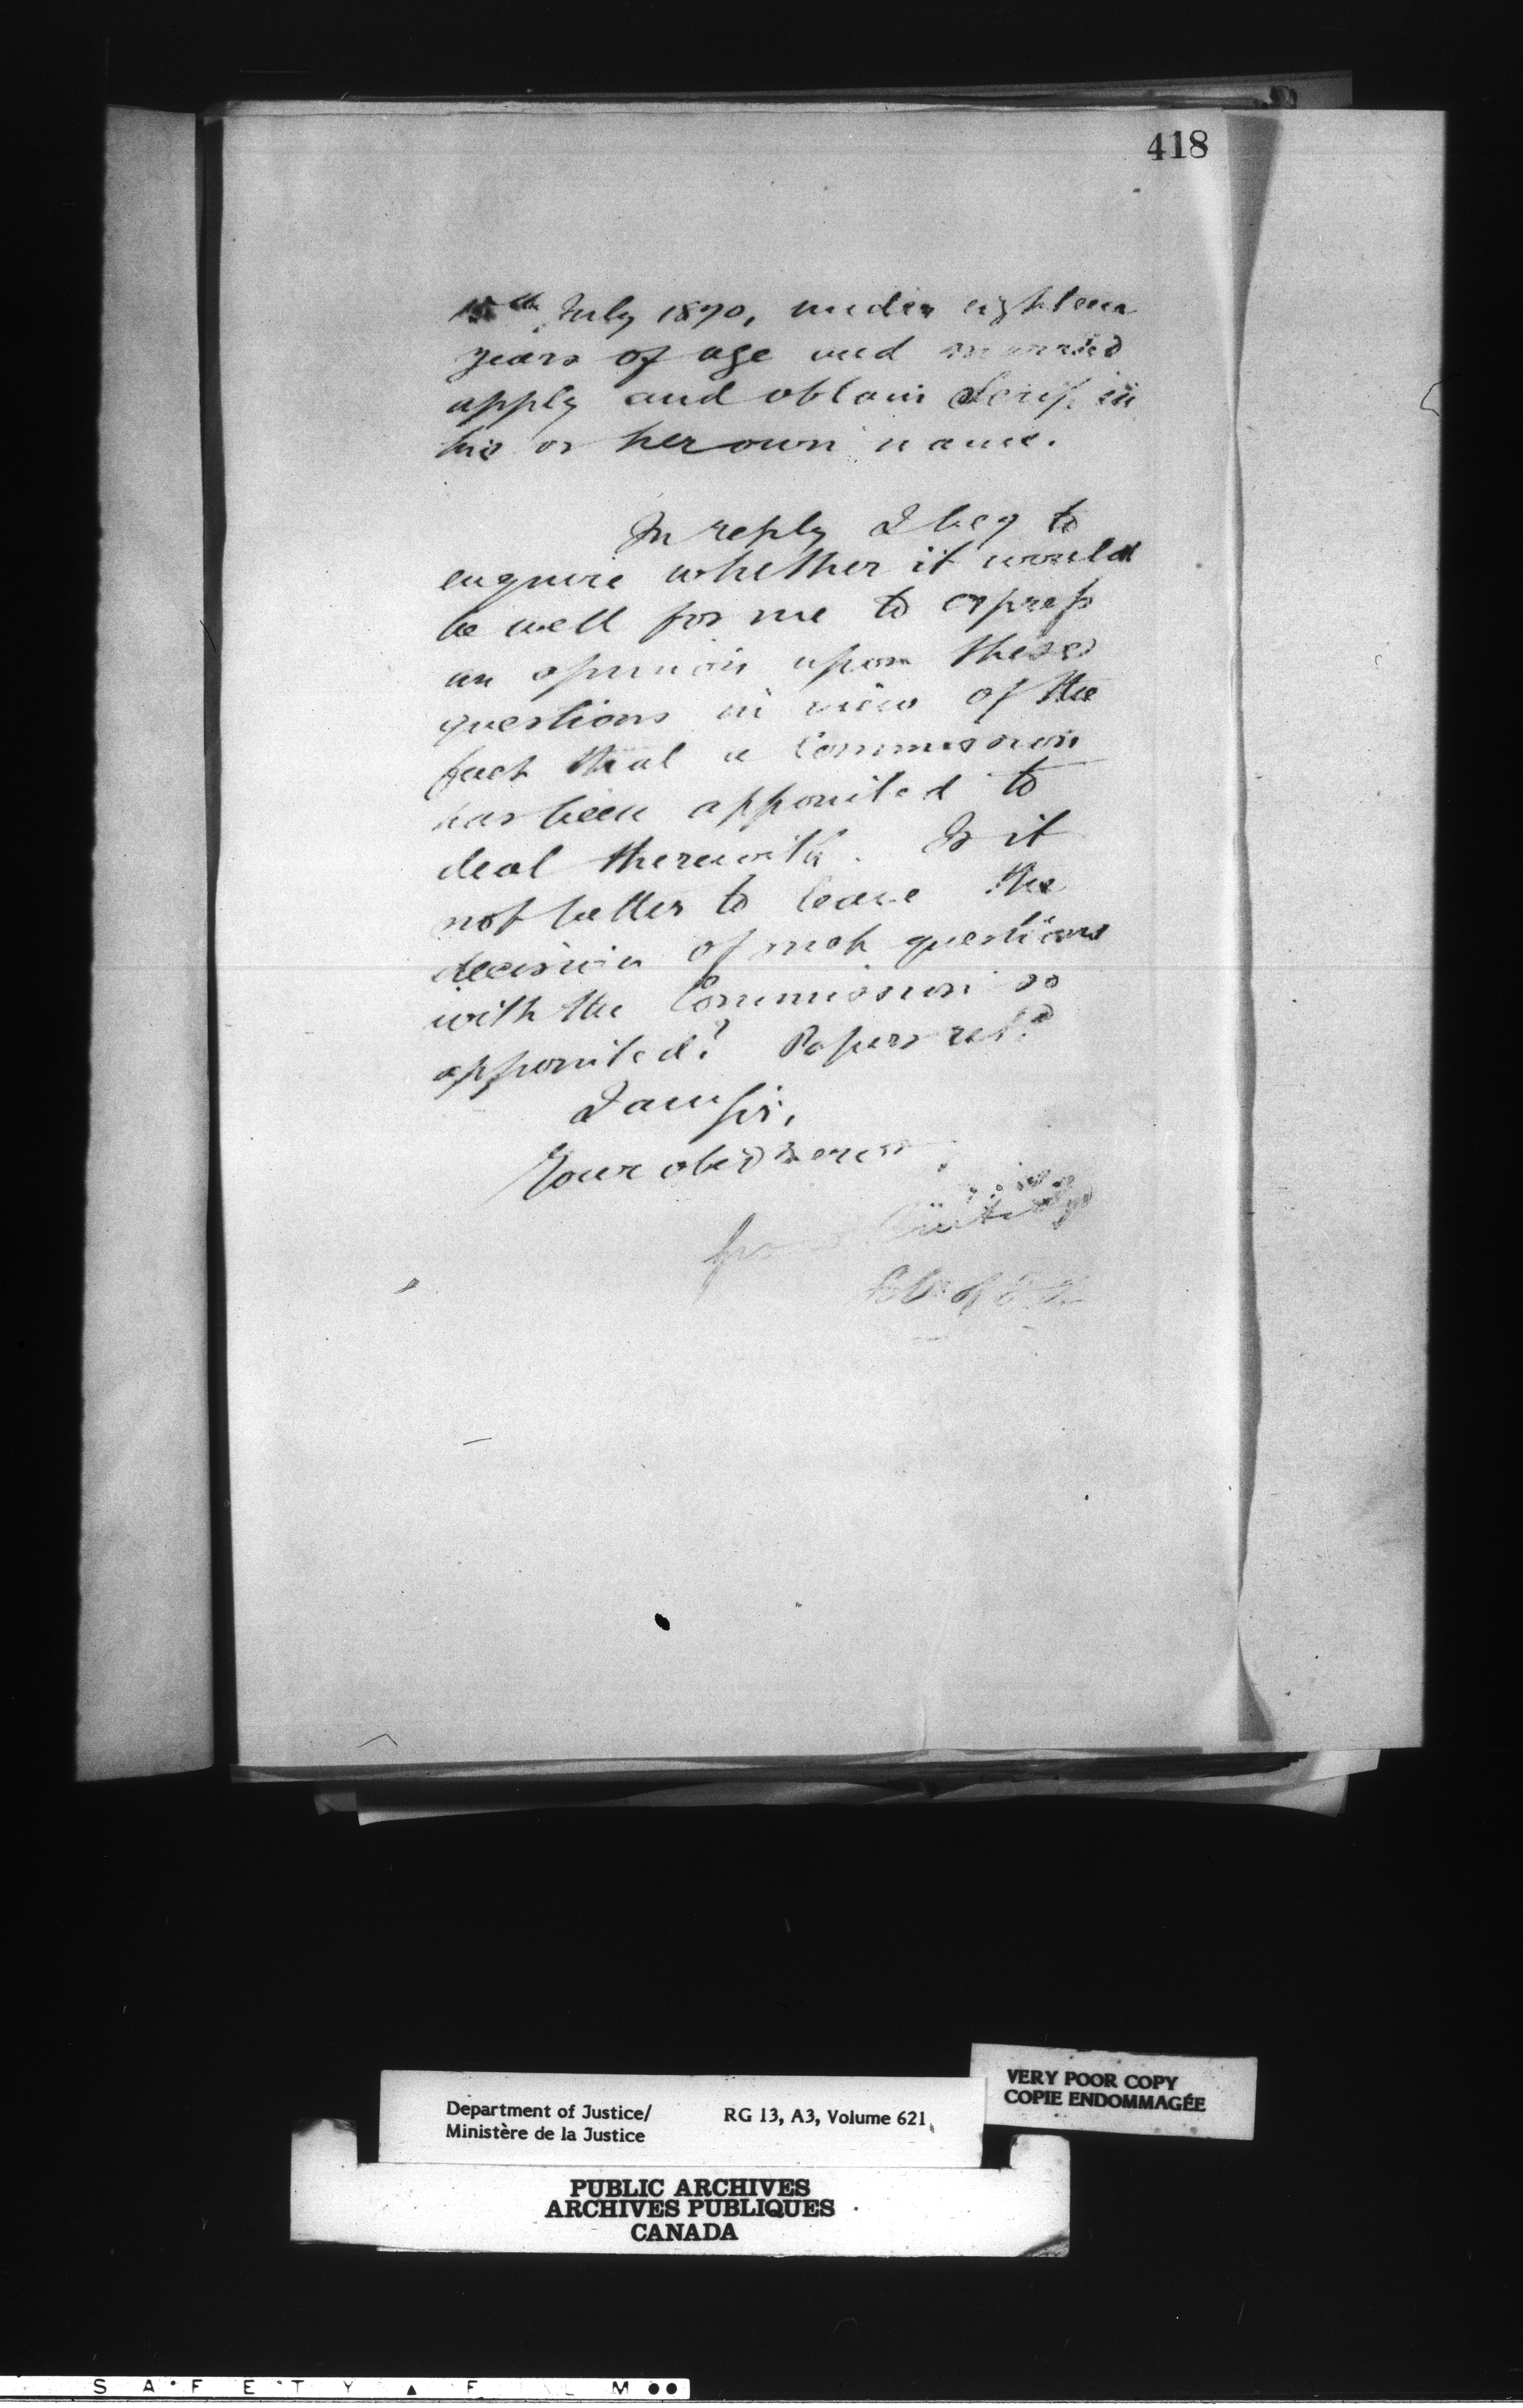 418
15th July 1870, under eighteen
years of age and married
apply and obtain Scrip in
his or her own name.
In reply I beg to
enquire whether it would
be well for me to express
an opinion upon these
questions in view of the
fact that a Commission
has been appointed to
deal therewith. Is it
not better to leave the
decision of such questions
with the Commission so
appointed? Papers retd
I am Sir,
Your obed serv
VERY POOR COPY
COPIE ENDOMMAGÉE
Department of Justice/ RG 13, A3, Volume 621
Ministère de la Justice
PUBLIC ARCHIVES
ARCHIVES PUBLIQUES
CANADA
S A F E T Y ▲ F I L M ●●